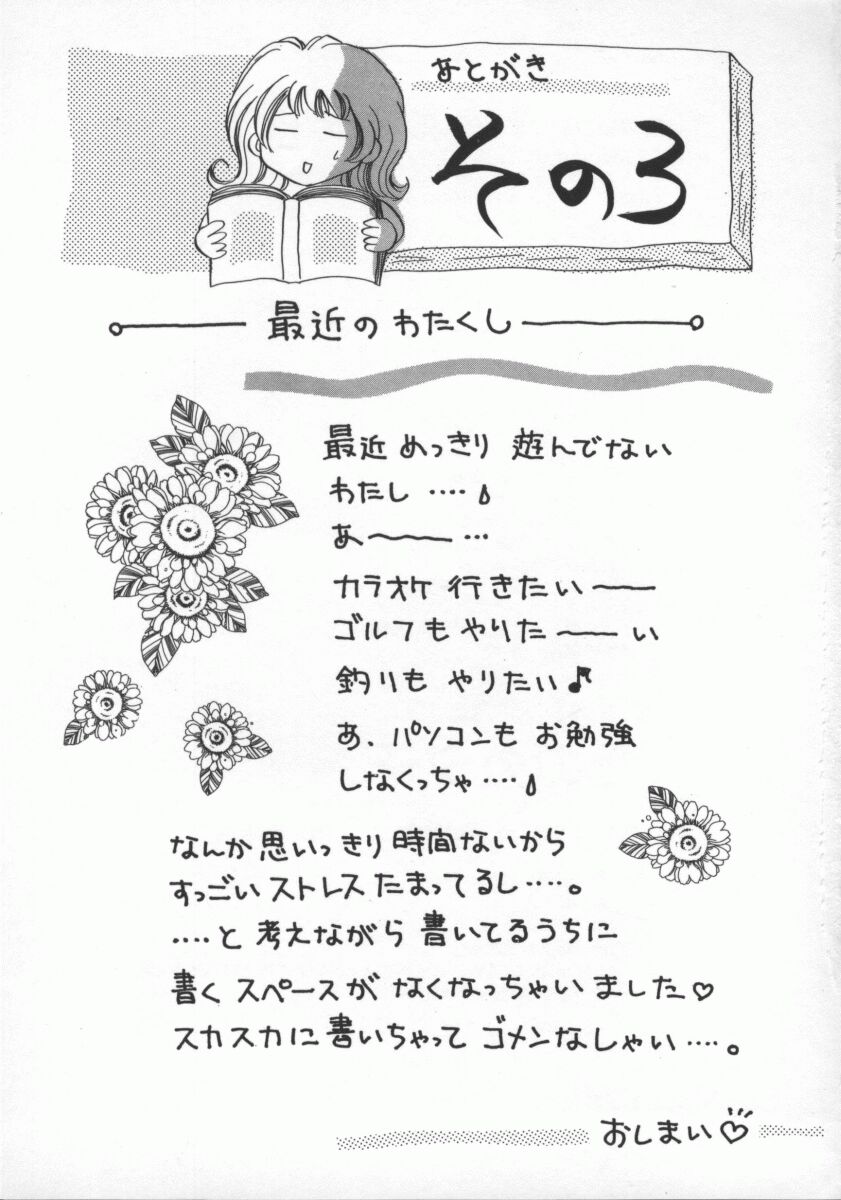 あとがき
その3
最近のわたくし
最近 めっきり 遊んでない
わたし ‥‥
あ〜〜…
カラオケ 行きたい〜〜
ゴルフも やりた〜〜い
釣りも やりたい♪
あ、パソコンも お勉強
しなくっちゃ‥‥
なんか 思いっきり 時間ないから
すっごい ストレス たまってるし‥‥。
‥‥と 考えながら 書いてるうちに
書く スペースが なくなっちゃいました♡
スカスカに 書いちゃって ゴメンなしゃい‥‥。
おしまい♡